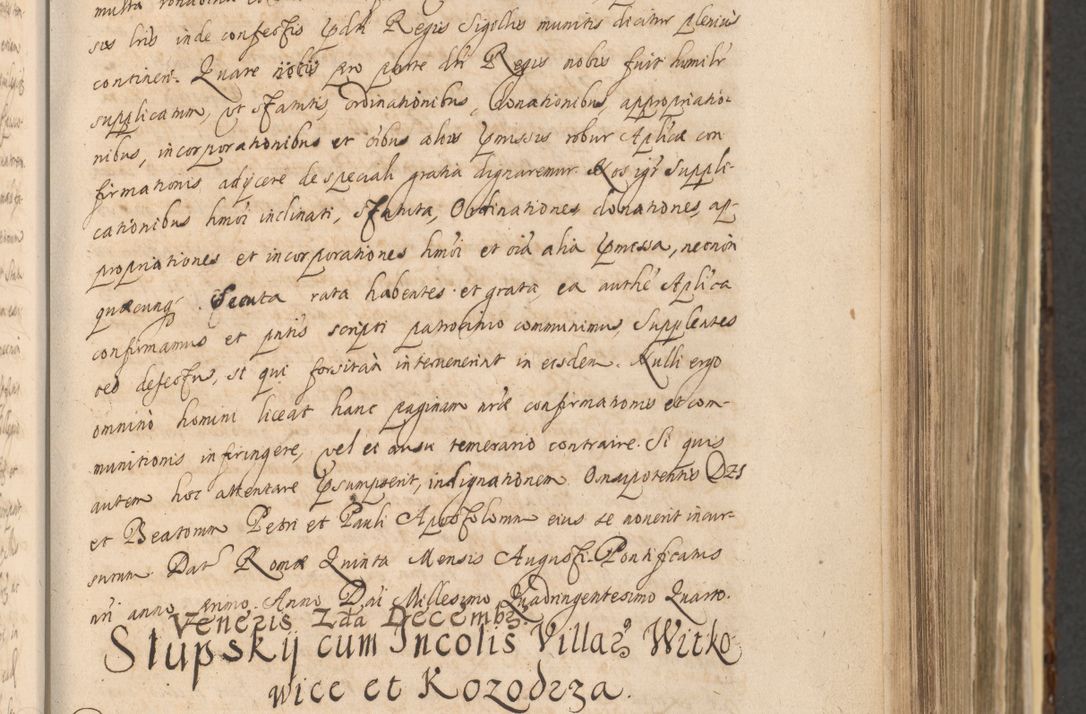 sus lris inde confectis pdti Regis Sigillis munitis dicitur plenius
contineri. Quare nobis pro parte dti Regis nobis fuit humilr
supplicatum, ut statutis, ordinationibus, donationibus, appropriatio-
nibus, incorporationibus et oibus aliis pmissis robur Aplicæ con
firmationis adijcere de speciali gratia dignaremur. Nos igr suppli-
cationibus hmoi inclinati, statuta, Ordinationes donationes, ap-
propriationes et incorporationes hmoi et oia alia pmissa, necnon
quæcunq secuta rata habentes et grata, ea authe Aplica
confirmamus et pntis scripti patrocinio communimus, Supplentes
oes defectus, si qui forsitan intervenerint in eisdem. Nulli ergo
omnino homini liceat hanc paginam nræ confirmationis et com-
munitionis infringere, vel ei ausu temerario contraire. Si quis
autem hoc attentare psumpserit, indignationem Omnipotentis Dei
et Beatorum Petri et Pauli Apostolorum eius se noverit incur-
surum. Dat Romæ Quinta Mensis Augusti. Pontificatus
nri anno primo. Anno Dni Millesimo Quadringentesimo Quarto.
Veneris 2da Decembr.
Slupskij cum Incolis Villar. Witko
wice et Kozodrza.